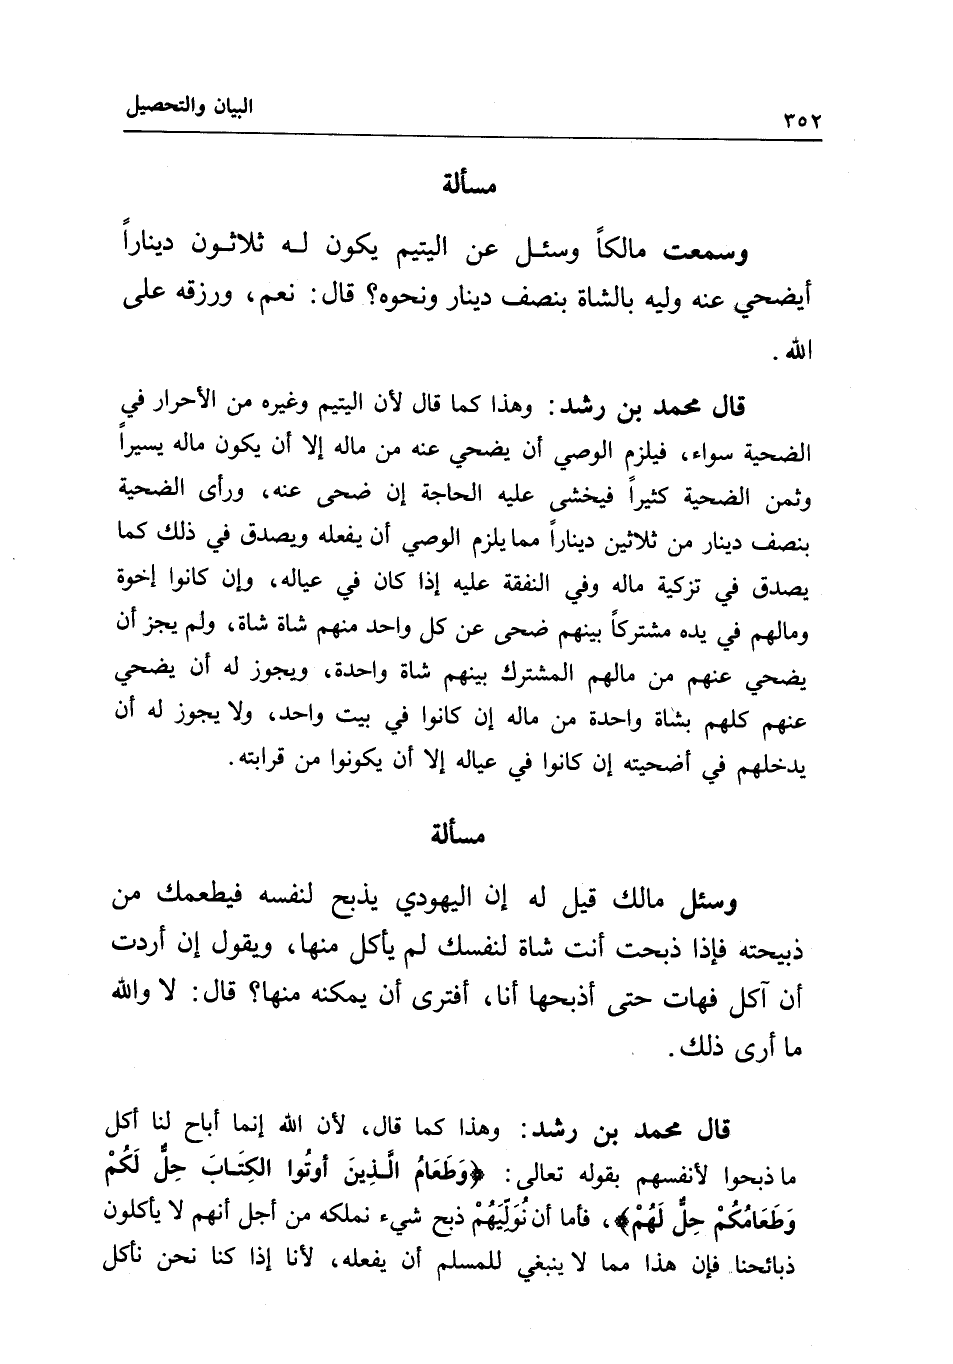 ٣٥٢
البيان والتحصيل
مسألة
وسمعت مالكاً وسئـل عن اليتيم يكون لـه ثلاثـون ديناراً
أيضحي عنه وليه بالشاة بنصف دينار ونحوه؟ قال: نعم، ورزقه على
الله.
قال محمد بن رشد: وهذا كما قال لأن اليتيم وغيره من الأحرار في
الضحية سواء، فيلزم الوصي أن يضحي عنه من ماله إلا أن يكون ماله يسيراً
وثمن الضحية كثيراً فيخشى عليه الحاجة إن ضحى عنه، ورأى الضحية
بنصف دينار من ثلاثين ديناراً مما يلزم الوصي أن يفعله ويصدق في ذلك كما
يصدق في تزكية ماله وفي النفقة عليه إذا كان في عياله، وإن كانوا إخوة
ومالهم في يده مشتركاً بينهم ضحى عن كل واحد منهم شاة شاة، ولم يجز أن
يضحي عنهم من مالهم المشترك بينهم شاة واحدة، ويجوز له أن يضحي
عنهم كلهم بشاة واحدة من ماله إن كانوا في بيت واحد، ولا يجوز له أن
يدخلهم في أضحيته إن كانوا في عياله إلا أن يكونوا من قرابته.
مسألة
وسئل مالك قيل له إن اليهودي يذبح لنفسه فيطعمك من
ذبيحته فإذا ذبحت أنت شاة لنفسك لم يأكل منها، ويقول إن أردت
أن آكل فهات حتى أذبحها أنا، أفترى أن يمكنه منها؟ قال: لا والله
ما أرى ذلك.
قال محمد بن رشد: وهذا كما قال، لأن الله إنما أباح لنا أكل
ما ذبحوا لأنفسهم بقوله تعالى: ﴿وَطَعَامُ الَّـذِينَ أوتُوا الكِتَـابَ حِلٌّ لَكُمْ
وَطَعَامُكُمْ حِلٌّ لَهُمْ﴾، فأما أن نُوَلِّيَهُمْ ذبح شيء نملكه من أجل أنهم لا يأكلون
ذبائحنا فإن هذا مما لا ينبغي للمسلم أن يفعله، لأنا إذا كنا نحن نأكل